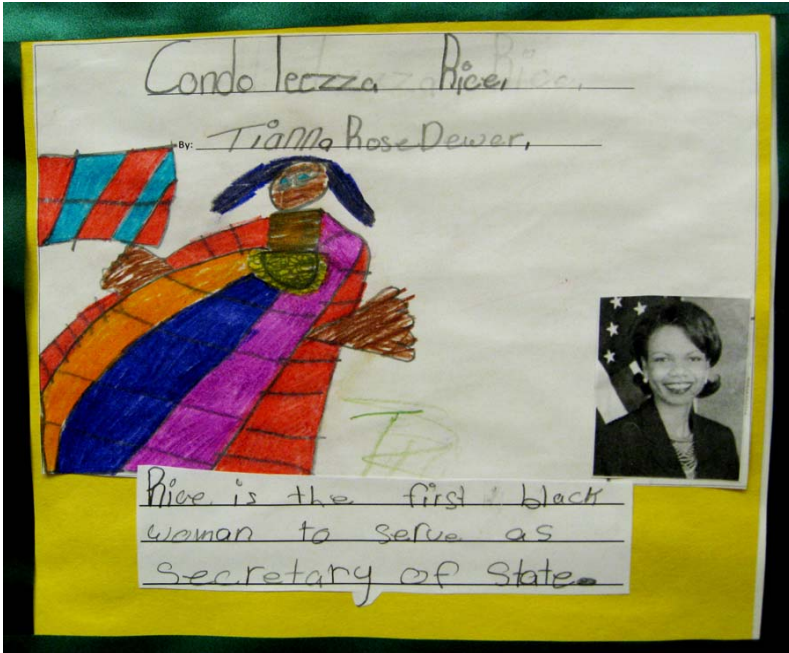 Condoleezza Rice,
By: Tianna Rose Dewer,
Rice is the first black
woman to serve as
Secretary of State.